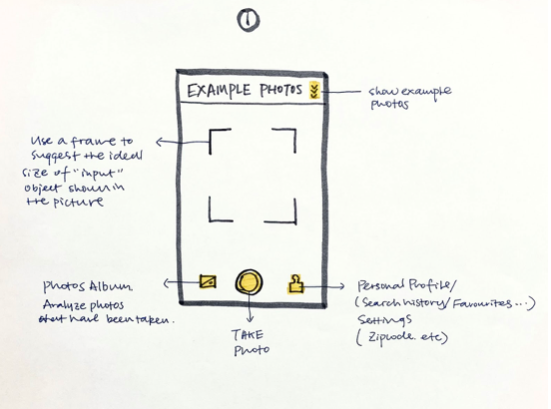 1
EXAMPLE PHOTOS
show example
photos
Use a frame to
suggest the ideal
size of "input"
object shown in
the picture
Photos Album
Analyze photos
that have been taken.
TAKE
Photo
Personal Profile/
(Search history/Favourites...)
Settings
(Zipcode. etc)